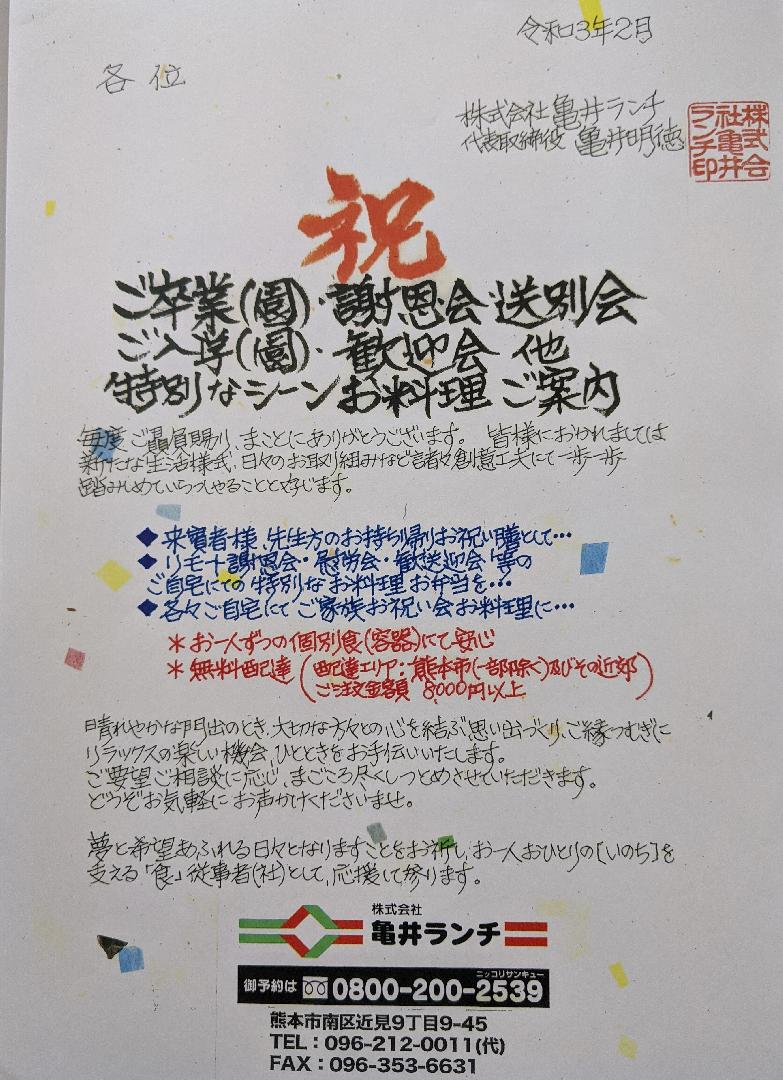 令和3年2月
各位
株式会社亀井ランチ
代表取締役 亀井明徳
株式会
社亀井
ランチ印
祝
ご卒業(園)・謝恩会 送別会
ご入学(園)・歓迎会 他
特別なシーンお料理 ご案内
毎度ご贔屓賜り、まことにありがとうございます。 皆様におかれましては
新たな生活様式、日々のお取り組みなど諸々創意工夫にて一歩一歩
踏みしめていらっしゃることと存じます。
◆来賓者様、先生方のお持ち帰りお祝い膳として…
◆リモート謝恩会・慰労会・歓送迎会 等の
ご自宅にての特別なお料理 お弁当を…
◆各々ご自宅にてご家族お祝い会お料理に…
*お一人ずつの個別食(容器)にて安心
*無料配達(配達エリア:熊本市(一部除く)及びその近郊
ご注文金額 8000円以上)
晴れやかな門出のとき、大切な方々との心を結ぶ思い出づくり、ご縁つむぎに
リラックスの楽しい機会、ひとときをお手伝いいたします。
ご要望ご相談に応じ、まごころ尽くしつとめさせていただきます。
どうぞお気軽にお声かけくださいませ。
夢と希望あふれる日々となりますことをお祈りし、お一人おひとりの[いのち]を
支える「食」従事者(社)として、応援して参ります。
株式会社
亀井ランチ
ニッコリサンキュー
御予約は 0800-200-2539
熊本市南区近見9丁目9-45
TEL:096-212-0011(代)
FAX:096-353-6631